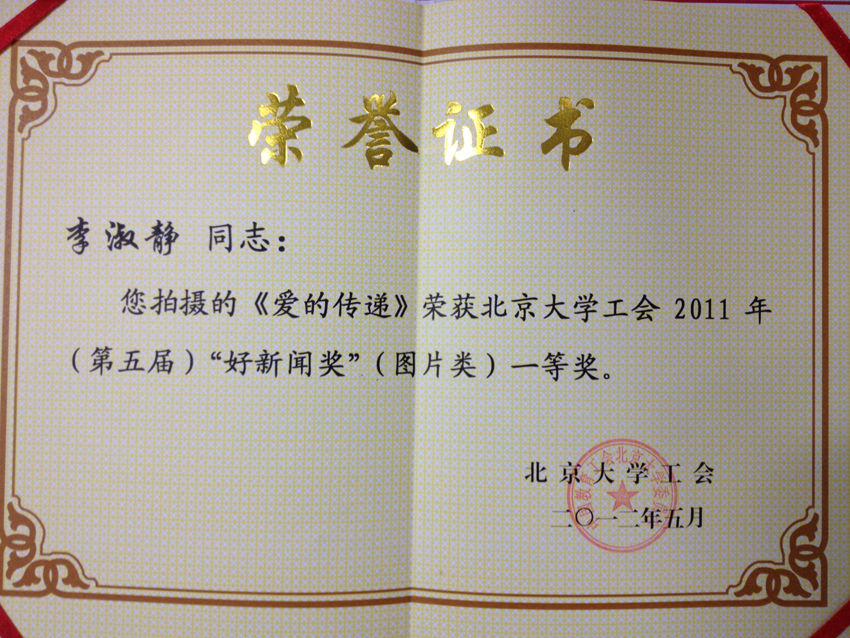 荣誉证书
李淑静 同志：
您拍摄的《爱的传递》荣获北京大学工会 2011 年
（第五届）“好新闻奖”（图片类）一等奖。
北京大学工会
二〇一二年五月